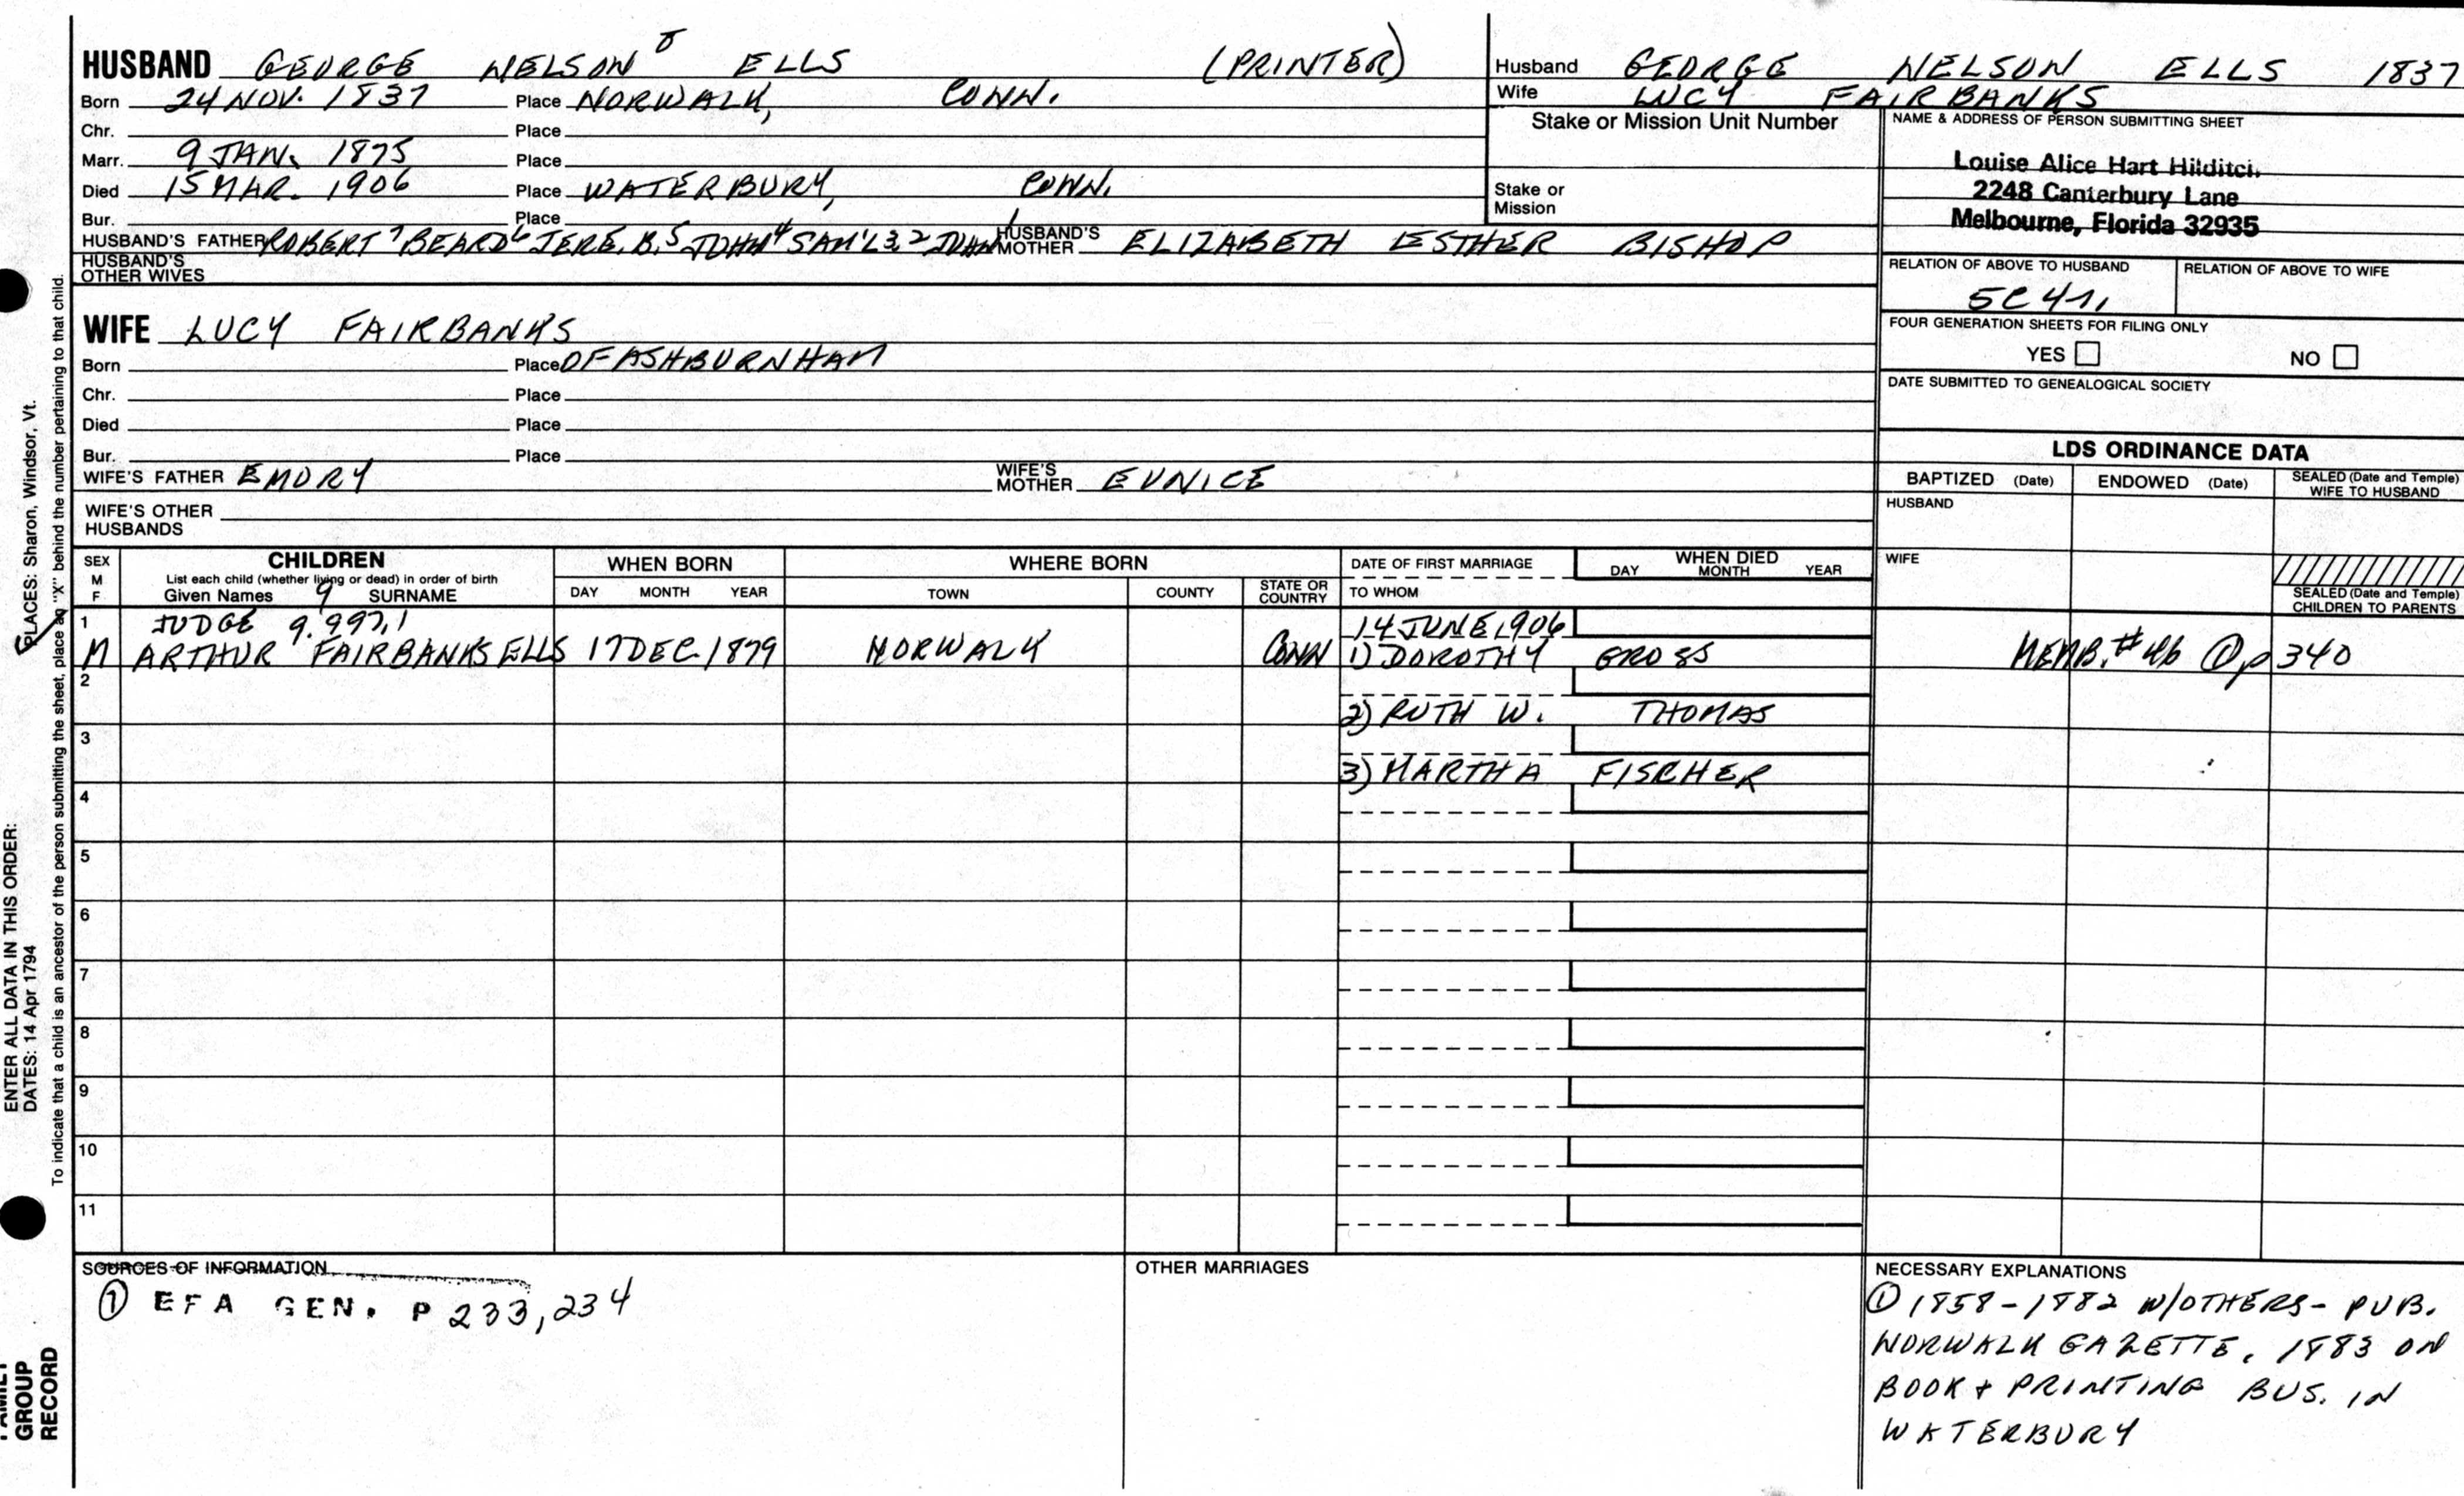 HUSBAND GEORGE NELSON 8 ELLS (PRINTER)
Born 24 NOV. 1837 Place NORWALK, CONN.
Chr. Place
Marr. 9 JAN. 1875 Place
Died 15 MAR. 1906 Place WATERBURY, CONN.
Bur. Place
HUSBAND'S FATHER ROBERT 7 BEARD 6 JERE. B. 5 JOHN 4 SAM'L 3, 2 JOHN 1 HUSBAND'S MOTHER ELIZABETH ESTHER BISHOP
HUSBAND'S OTHER WIVES
Husband GEORGE NELSON ELLS 1837
Wife LUCY FAIRBANKS
Stake or Mission Unit Number
Stake or Mission
NAME & ADDRESS OF PERSON SUBMITTING SHEET
Louise Alice Hart Hilditch
2248 Canterbury Lane
Melbourne, Florida 32935
RELATION OF ABOVE TO HUSBAND RELATION OF ABOVE TO WIFE
5C 4
FOUR GENERATION SHEETS FOR FILING ONLY
YES NO
DATE SUBMITTED TO GENEALOGICAL SOCIETY
WIFE LUCY FAIRBANKS
Born Place OF ASHBURNHAM
Chr. Place
Died Place
Bur. Place
WIFE'S FATHER EMORY WIFE'S MOTHER EUNICE
WIFE'S OTHER HUSBANDS
LDS ORDINANCE DATA
BAPTIZED (Date) ENDOWED (Date) SEALED (Date and Temple) WIFE TO HUSBAND
HUSBAND
WIFE
SEALED (Date and Temple) CHILDREN TO PARENTS
SEX M F
CHILDREN
List each child (whether living or dead) in order of birth
Given Names 9 SURNAME
WHEN BORN
DAY MONTH YEAR
WHERE BORN
TOWN COUNTY STATE OR COUNTRY
DATE OF FIRST MARRIAGE
TO WHOM
WHEN DIED
DAY MONTH YEAR
1 JUDGE 9.997.1 14 JUNE 1906
M ARTHUR FAIRBANKS ELLS 17 DEC. 1879 NORWALK CONN 1) DOROTHY GROSS MEMB. # 46 ① p 340
2
2) RUTH W. THOMAS
3
3) MARTHA FISCHER
4
5
6
7
8
9
10
11
SOURCES OF INFORMATION
① EFA GEN. P 233, 234
OTHER MARRIAGES
NECESSARY EXPLANATIONS
① 1858-1882 W/OTHERS- PUB.
NORWALK GAZETTE. 1883 ON
BOOK + PRINTING BUS. IN
WATERBURY
ENTER ALL DATA IN THIS ORDER:
DATES: 14 Apr 1794
PLACES: Sharon, Windsor, Vt.
To indicate that a child is an ancestor of the person submitting the sheet, place an "X" behind the number pertaining to that child.
FAMILY GROUP RECORD